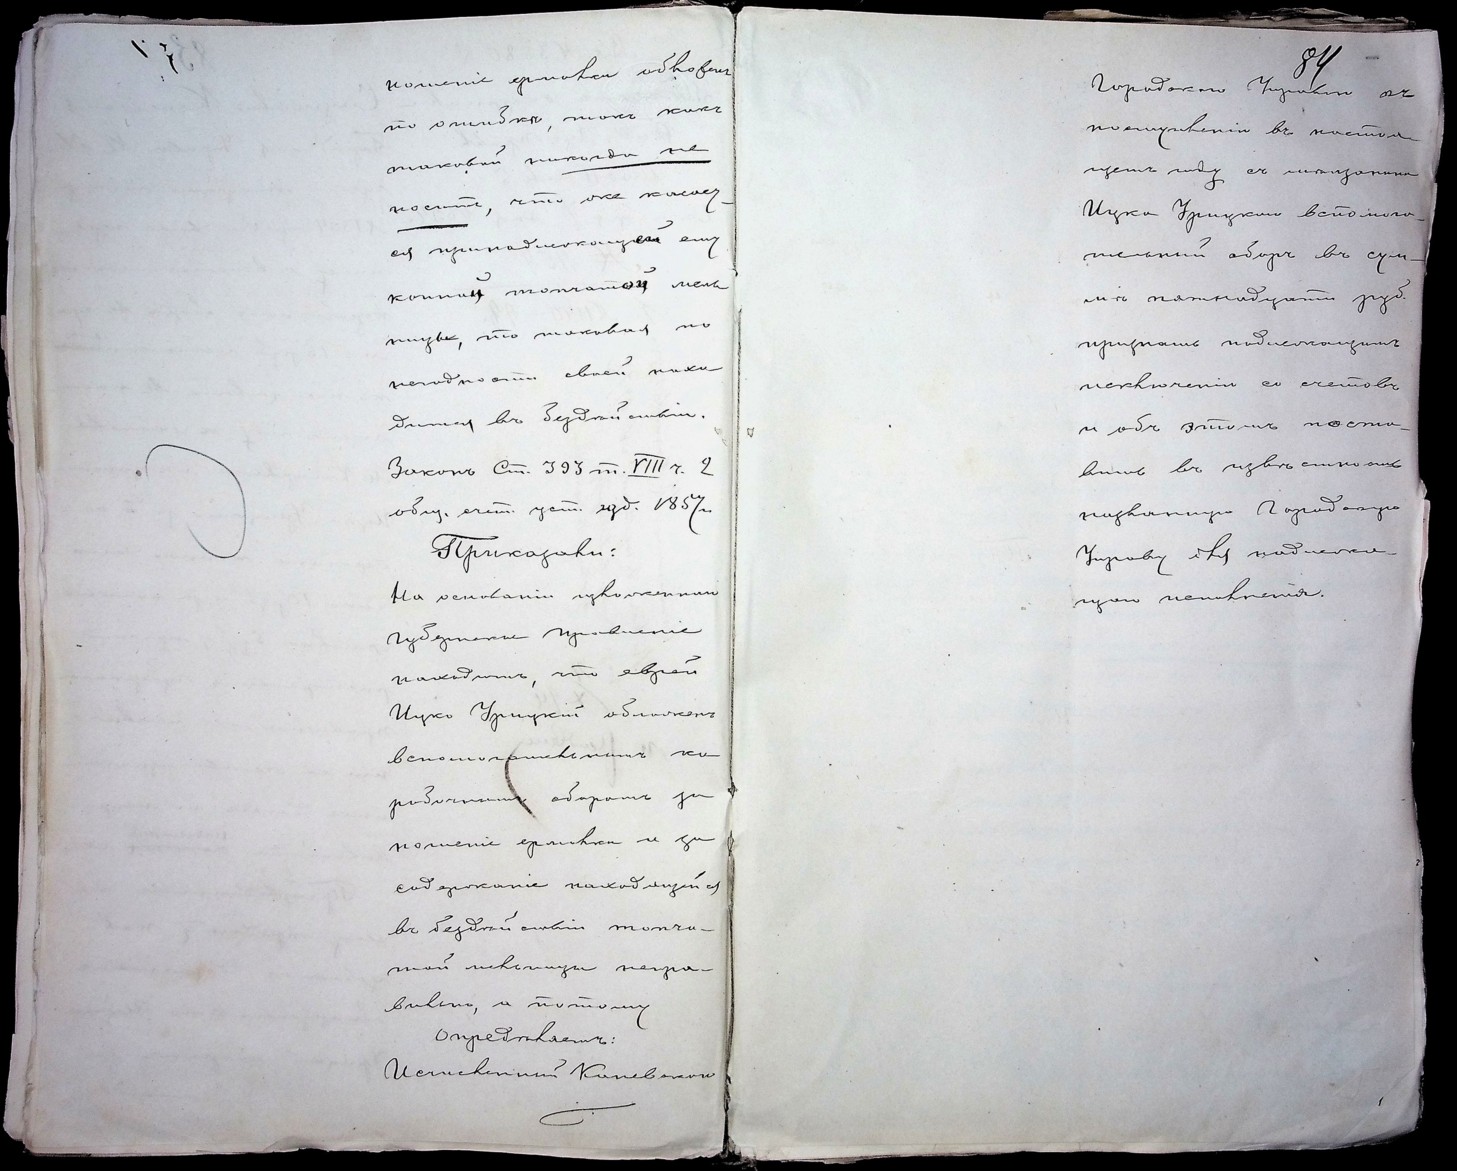 ношеніе ермолки обложенъ
по ошибкѣ, такъ какъ
таковой никогда не
носитъ, что же касает-
ся принадлежащей ему
конной топчатой мель
ницы, то таковая по
негодности своей нахо
дится въ бездѣйствіи.
Законъ Ст. 393 т. VIII ч. 2
общ. счет. уст. изд. 1857 г.
Приказали:
На основаніи изложеннаго
Губернское Правленіе
находитъ, что еврей
Ицко Урицкій обложенъ
вспомогательнымъ ко
робочнымъ сборомъ за
ношеніе ермолки и за
содержаніе находящейся
въ бездѣйствіи топча-
той мельницы непра-
вильно, а потому
Опредѣляетъ:
Исчисленный Каневскою
84
Городскою Управою къ
поступленію въ настоя
щемъ году съ мѣщанина
Ицка Урицкаго вспомога-
тельный сборъ въ сум-
мѣ пятнадцати руб.
признать подлежащимъ
исключенію со счетовъ
и объ этомъ поста-
вить въ извѣстность
названную Городскую
Управу для надлежа-
щаго исполненія.